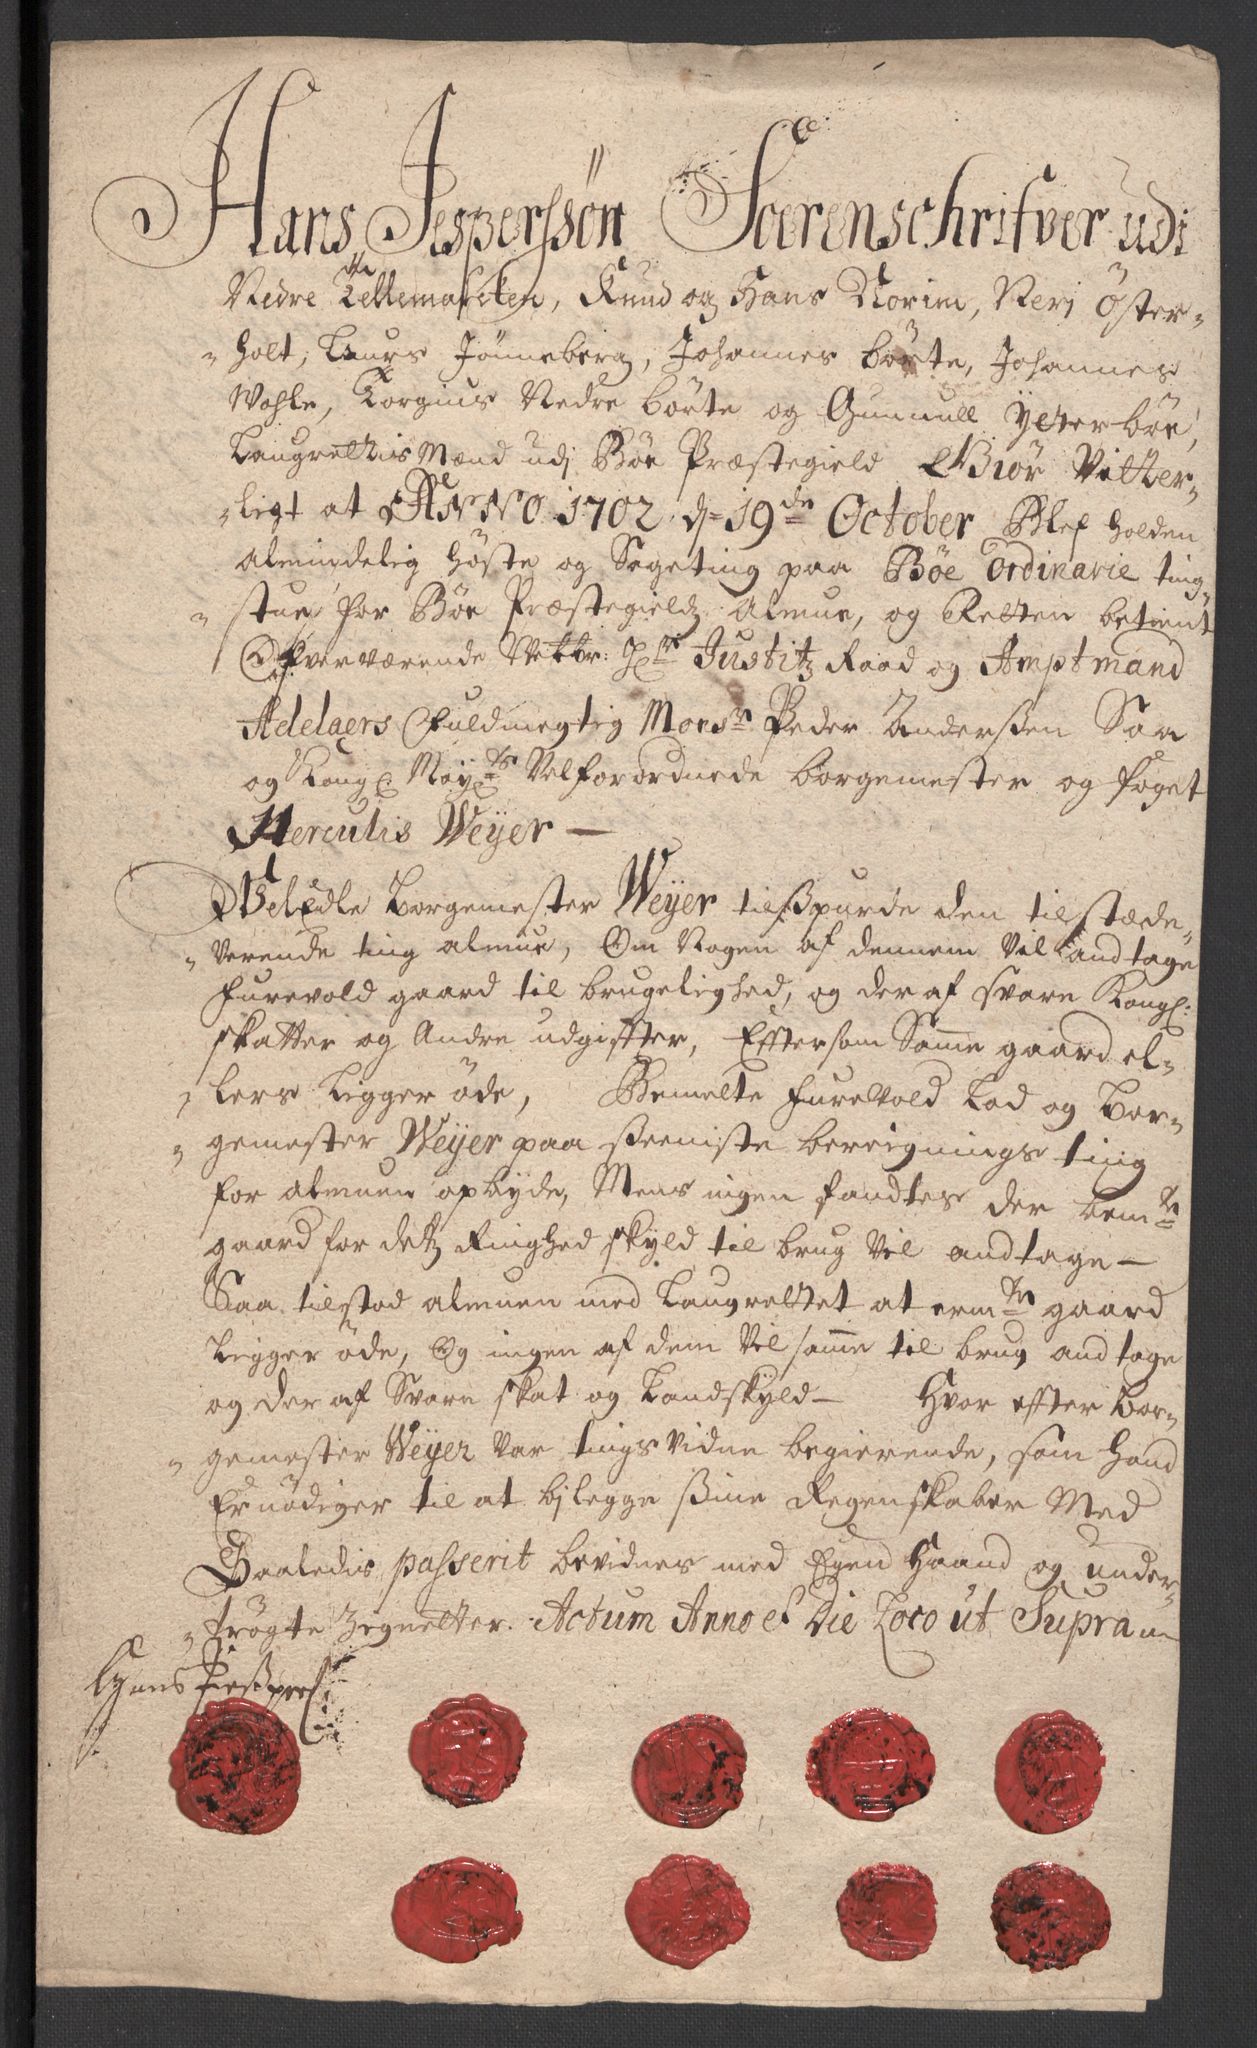 Hans Jesperssøn Soerenschrifver udi
Nedre Tellemarcken, Knud og Hans Norim, Neri Öster-
-holt, Laurs Jönneberg, Johannes börte, Johannes
Wohle, Torgius Nedre börte og Gunnull Ÿtterböe,
Laugrettis Mænd udj Böe Præstegield Giör Vitter-
-ligt at ANNO 1702 d= 19de October Blef holden
almindelig höste og Sageting paa Böe Ordinarie ting-
-stue for Böe Præstegieldz almue, og Retten betient
Ofververende Velbr: Hr Justitz Raad og Amptmand
Adelaers Fuldmegtig Monsr Peder Anderßen Saa
og Kongl Mayts Velforordnede borgemester og foget
Herculis Weyer —
Veledle Borgemester Weyer tilßpurde den tilstæde-
-verende ting almue, Om Nogen af dennem Vil andtage
Furevold gaard til brugelighed, og der af svare Kongl:
skatter og Andre udgiffter, Efftersom Samme gaard el-
-lers ligger öde, Bemelte Furevold Lod og Bor-
-gemester Weyer paa seeniste bereignings ting
for almuen opbyde, Mens ingen fandtes der bemte
gaard for detz Ringhed skyld til brug Vil andtage —
Saa tilstod almuen med Laugrettet at ermte gaard
Ligger öde, Og ingen af dem Vil samme til brug andtage
og der af Svare skat og Landskyld — Hvor effter Bor-
-gemester Weyer Var tings Vidne begierende, som hand
Er nödiger til at bjlegge ßine Regenskaber Med
Saaledis passerit bevidnes med Egen Haand og under-
-trögte Zignetter. Actum Anno et Die Loco ut Supra
Hans Jesperß: